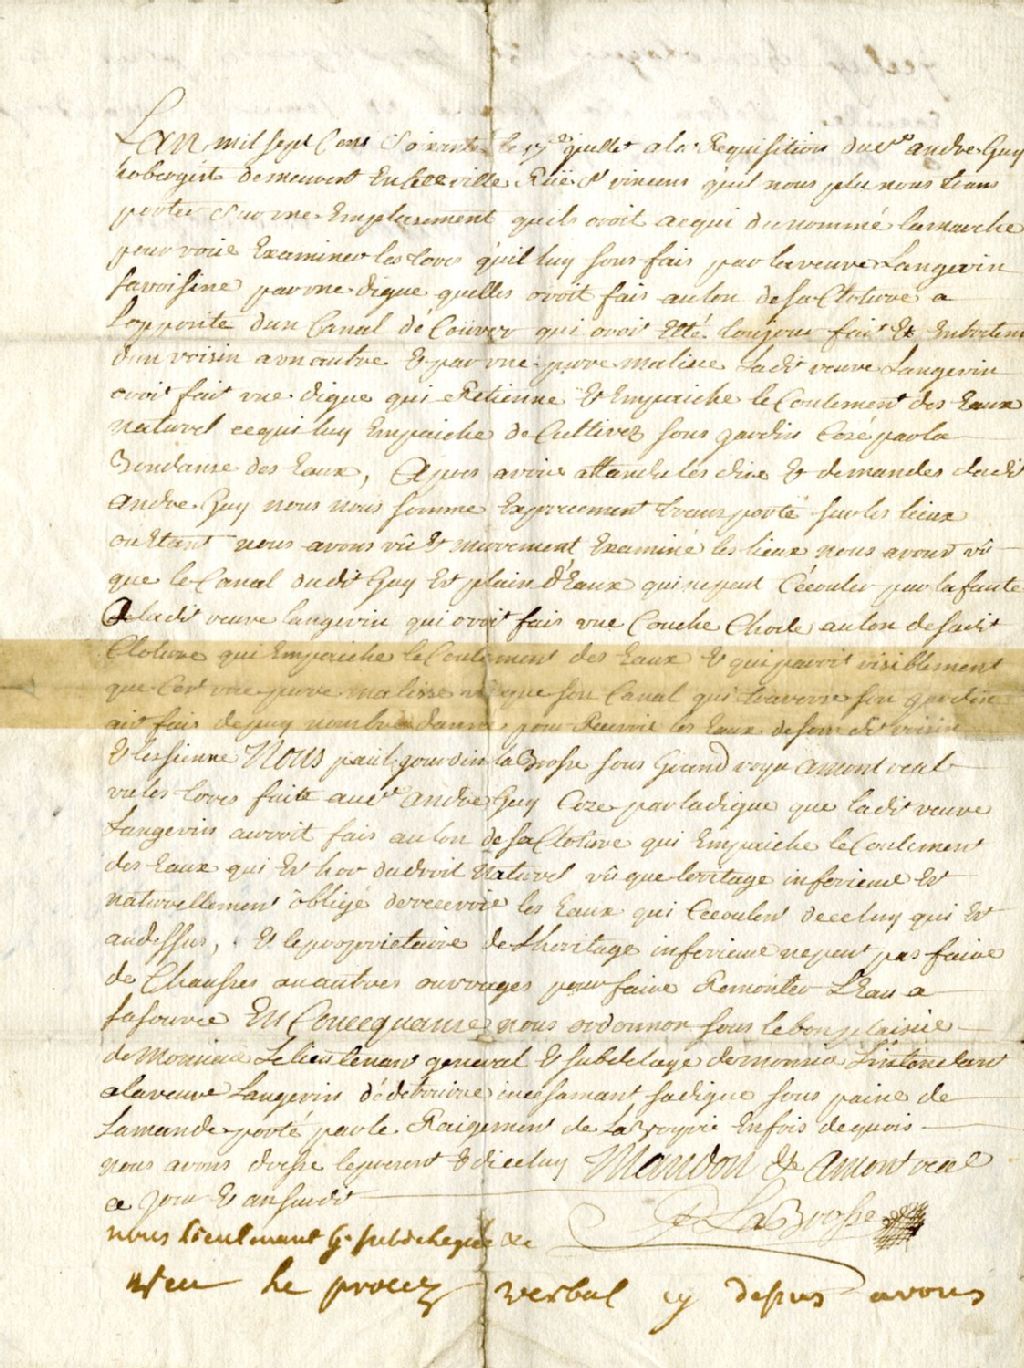 Lan mil sept Cens Soixante le 17e juillet a la Requisition du sr andre Guy
aubergiste demeurent En cete ville Rüe st vincens quil nous plu nous trans
porter Sur une Emplasement quils avoit acqui du nommé lamarche
pour voir Examiner les tores quil luy sons fais par la veuve Langevin
sa voisine par une digue quelles avoit fais au lon de sa Cloture a
Lopposite dun Canal dé Couver qui avoit Etté toujours fait Et Entretenu
dun voisin a un autre Et par une pure malice ladit veuve Langevin
avoit fait une digue qui Retienne Et Empaiche le Coulement des Eaux
naturel ce qui luy Empaiche de Cultivez sons jardin Cozé par la
Bondanse des Eaux, Apres avoir attandu les dire Et demandes dudit
andre Guy nous nous somme Expressement transporté sur les lieux
ou Etant nous avons vû Et murement Examiné les lieux nous avons vû
que le Canal dudit Guy Est plain d'Eaux qui ne peut Cécouler par la faute
de ladit veuve langevin qui avoit fais une Couche Chode au lon de sadit
Cloture qui Empaiche le Coulement des Eaux Et qui paroit visiblement
que Cest une pure malisse vû que son Canal qui traverse son gardin
ait fais depuy nombre danne pour Recevoir les Eaux de son dit voisin
Et les sienne Nous paul jourdin la Brosse sous Grand voye a montreal
vu les tores faite au sr andre Guy Coze par la digue que ladit veuve
Langevin auroit fais au lon de sa Cloture qui Empaiche le Coulement
des Eaux qui Est hor du droit Naturel vû que leritage inferieure Est
naturellement obligé de recevoir les Eaux qui Cecoulent de celuy qui Est
au dessus, Et le proprietaire de lheritage inferieure ne peut pas faire
de Chausses ou autres ouvrages pour faire Remonter L'Eau a
sa source En Concequance nous ordonnon sous le bon plaisir
de Monsieur Le lieutenant general Et subdelage de monsieur Lintendant
a la veuve Langevin dé detruire incessamant sa digue sous paine de
Lamande porté par le Raigement de la voyrie En fois de quois
nous avons dresse le present Et dicelluy Mandon Et a montreal
ce jour Et an susdit
P LaBrosse
nous Lieutenant G. subdelegué &c
veu le procez verbal cy dessus avons